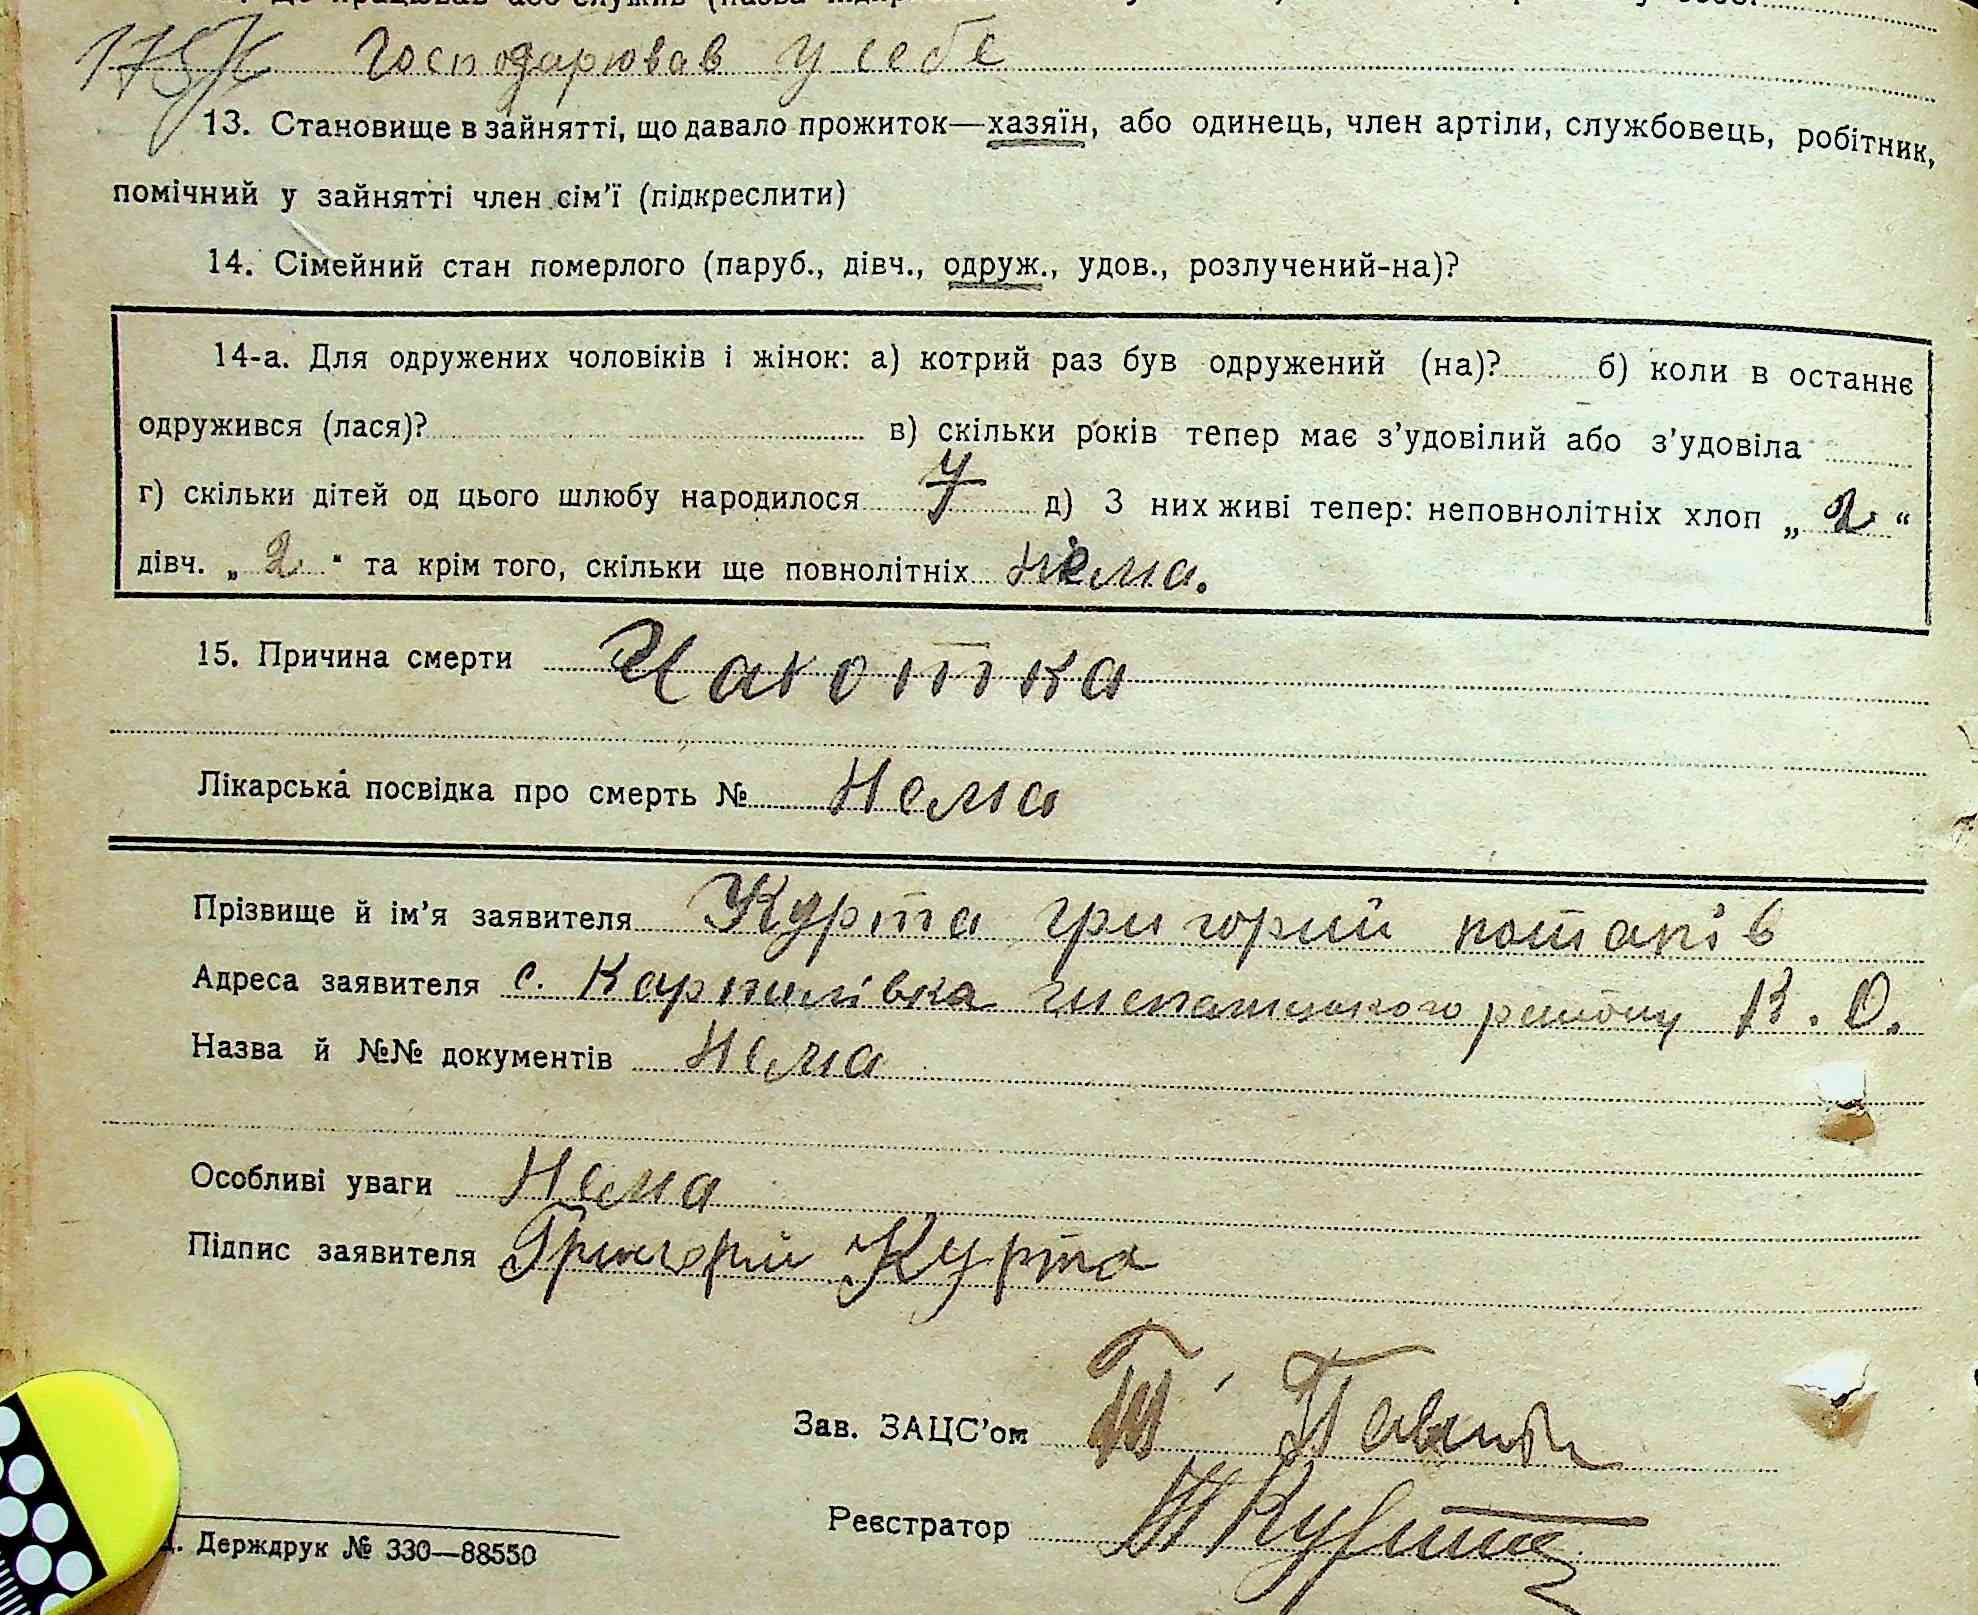 175/к Господарював у себе
13. Становище в зайнятті, що давало прожиток—хазяїн, або одинець, член артіли, службовець, робітник,
помічний у зайнятті член сім'ї (підкреслити)
14. Сімейний стан померлого (паруб., дівч., одруж., удов., розлучений-на)?
14-а. Для одружених чоловіків і жінок: а) котрий раз був одружений (на)? б) коли в останнє
одружився (лася)? в) скільки років тепер має з'удовілий або з'удовіла
г) скільки дітей од цього шлюбу народилося д) З них живі тепер: неповнолітніх хлоп „ 2 “
дівч. „ 2 “ та крім того, скільки ще повнолітніх нема.
15. Причина смерти Чахотка
Лікарська посвідка про смерть № Нема
Прізвище й ім'я заявителя Курта григорий потапів
Адреса заявителя с. Карпилівка району К. О.
Назва й №№ документів Нема
Особливі уваги Нема
Підпис заявителя Григорій Курта
Зав. ЗАЦС'ом
Реєстратор
Держдрук № 330—88550